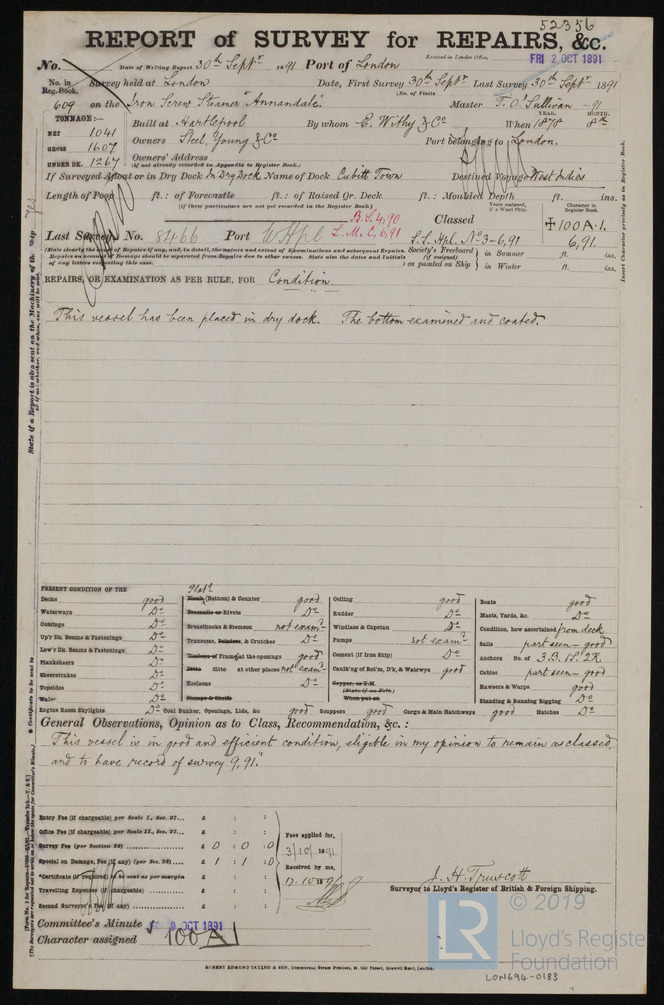 52356
REPORT of SURVEY for REPAIRS, &c.
Received in London Office, FRI 2 OCT 1891
No. Date of Writing Report 30th Septr. 1891 Port of London
No. in Reg. Book. Survey held at London Date, First Survey 30th Septr Last Survey 30th Septr 1891
(No. of Visits
609 on the Iron Screw Steamer "Annandale" Master T. O'Sullivan - 91
TONNAGE:— YEAR. MONTH.
NET 1041 Built at Hartlepool By whom E. Withy & Co When 1878 8th
GROSS 1607 Owners Steel, Young & Co Port belonging to London.
UNDER DK. 1267 Owners' Address
(If not already recorded in Appendix to Register Book.)
If Surveyed Afloat or in Dry Dock In Dry Dock Name of Dock Cubitt Town Destined Voyage West Indies
Length of Poop ft.: of Forecastle ft.: of Raised Qr. Deck ft.: Moulded Depth ft. ins.
(If these particulars are not yet recorded in the Register Book.)
Years assigned, if a Wood Ship. Character in Register Book.
B.S. 4,90 Classed ✠100A.1.
Last Survey No. 8466 Port WHpl L.M.C. 6,91 S.S. Hpl. No 3-6,91 6,91.
Society's Freeboard (if assigned) as painted on Ship in Summer ft. ins.
in Winter ft. ins.
REPAIRS, OR EXAMINATION AS PER RULE, FOR Condition
This vessel has been placed in dry dock. The bottom examined and coated.
PRESENT CONDITION OF THE
Decks good
Waterways Do
Comings Do
Up'r Dk. Beams & Fastenings Do
Low'r Dk. Beams & Fastenings Do
Planksheers Do
Sheerstrakes Do
Topsides Do
Wales Do
Engine Room Skylights Do
Plats
Plank (Bottom) & Counter good
Treenails or Rivets Do
Breasthooks & Stemson not examd
Transoms, Pointers, & Crutches Do
Timbers of Frames at the openings good
Ditto ditto at other places not examd
Keelsons Do
Clamps & Shelfs
Coal Bunker, Openings, Lids, &c good
Ceiling good
Rudder Do
Windlass & Capstan Do
Pumps not examd
Cement (if Iron Ship) Do
Caulk'ng of Bot'm, D'k, & Watrwys good
Copper, or Y.M.
(State if on Felt.)
When put on
Scuppers good Cargo & Main Hatchways good Hatches Do
Boats good
Masts, Yards, &c. Do
Condition, how ascertained from deck
Sails part seen - good
Anchors No. of 3 B. 1 S. 2 K.
Cables part seen - good
Hawsers & Warps good
Standing & Running Rigging Do
General Observations, Opinion as to Class, Recommendation, &c.:
This vessel is in good and efficient condition, eligible in my opinion to remain as classed,
and to have record of survey 9,91.
Entry Fee (if chargeable) per Scale I., Sec. 27... £ : :
Office Fee (if chargeable) per Scale II., Sec. 27... £ : :
Survey Fee (per Section 28) £ 0 : 0 : 0
Special on Damage, Fee (if any) (per Sec. 28) £ 1 : 1 : 0
*Certificate (if required) to be sent as per margin £ : :
Travelling Expenses (if chargeable) £ : :
Second Surveyor's Fee (if any) £ : :
Fees applied for,
3/10/1891
Received by me,
J. H. Truscott
Surveyor to Lloyd's Register of British & Foreign Shipping.
Committee's Minute FRI 9 OCT 1891
Character assigned 100A1
© 2019
LR Lloyd's Register Foundation
LON694-0183